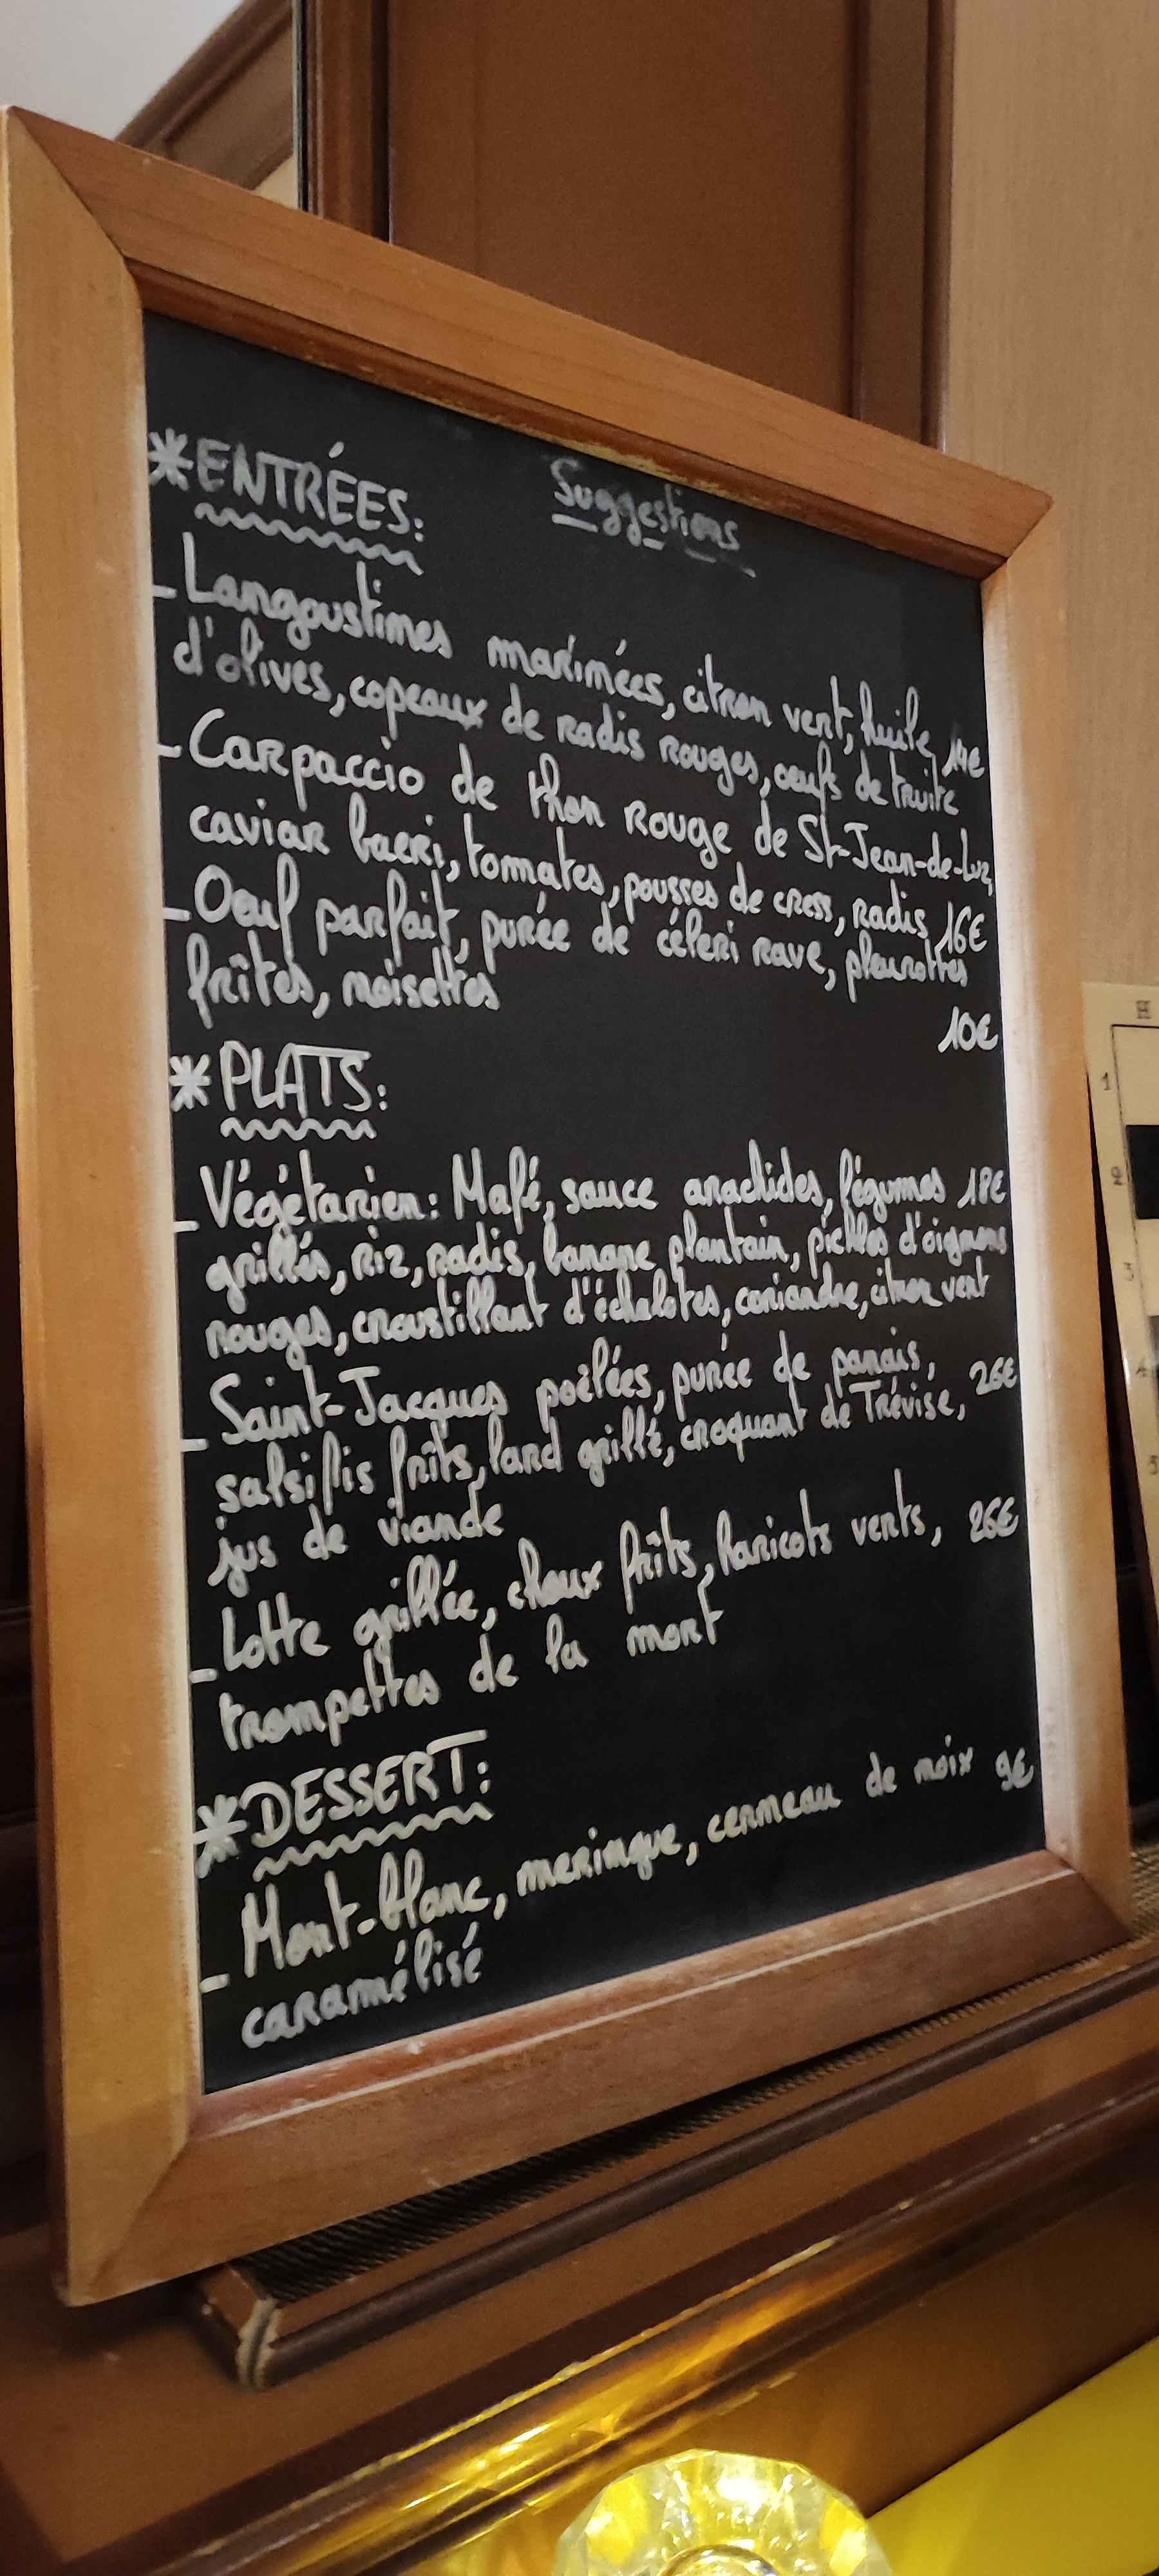 Suggestions
*ENTRÉES:
- Langoustines marinées, citron vert, huile 14€
d'olives, copeaux de radis rouges, oeufs de truite
- Carpaccio de thon rouge de St-Jean-de-Luz,
caviar baeri, tomates, pousses de cress, radis 16€
- Oeuf parfait, purée de céleri rave, pleurottes
frîtes, noisettes
10€
*PLATS:
- Végétarien: Mafé, sauce arachides, légumes 18€
grillés, riz, radis, banane plantain, pickles d'oignons
rouges, croustillant d'échalotes, coriandre, citron vert
- Saint-Jacques poêlées, purée de panais, 26€
salsifis frîts, lard grillé, croquant de Trévise,
jus de viande
- Lotte grillée, choux frîts, haricots verts, 26€
trompettes de la mort
*DESSERT:
- Mont-blanc, meringue, cerneau de noix 9€
caramélisé
H
1
2
3
4
5